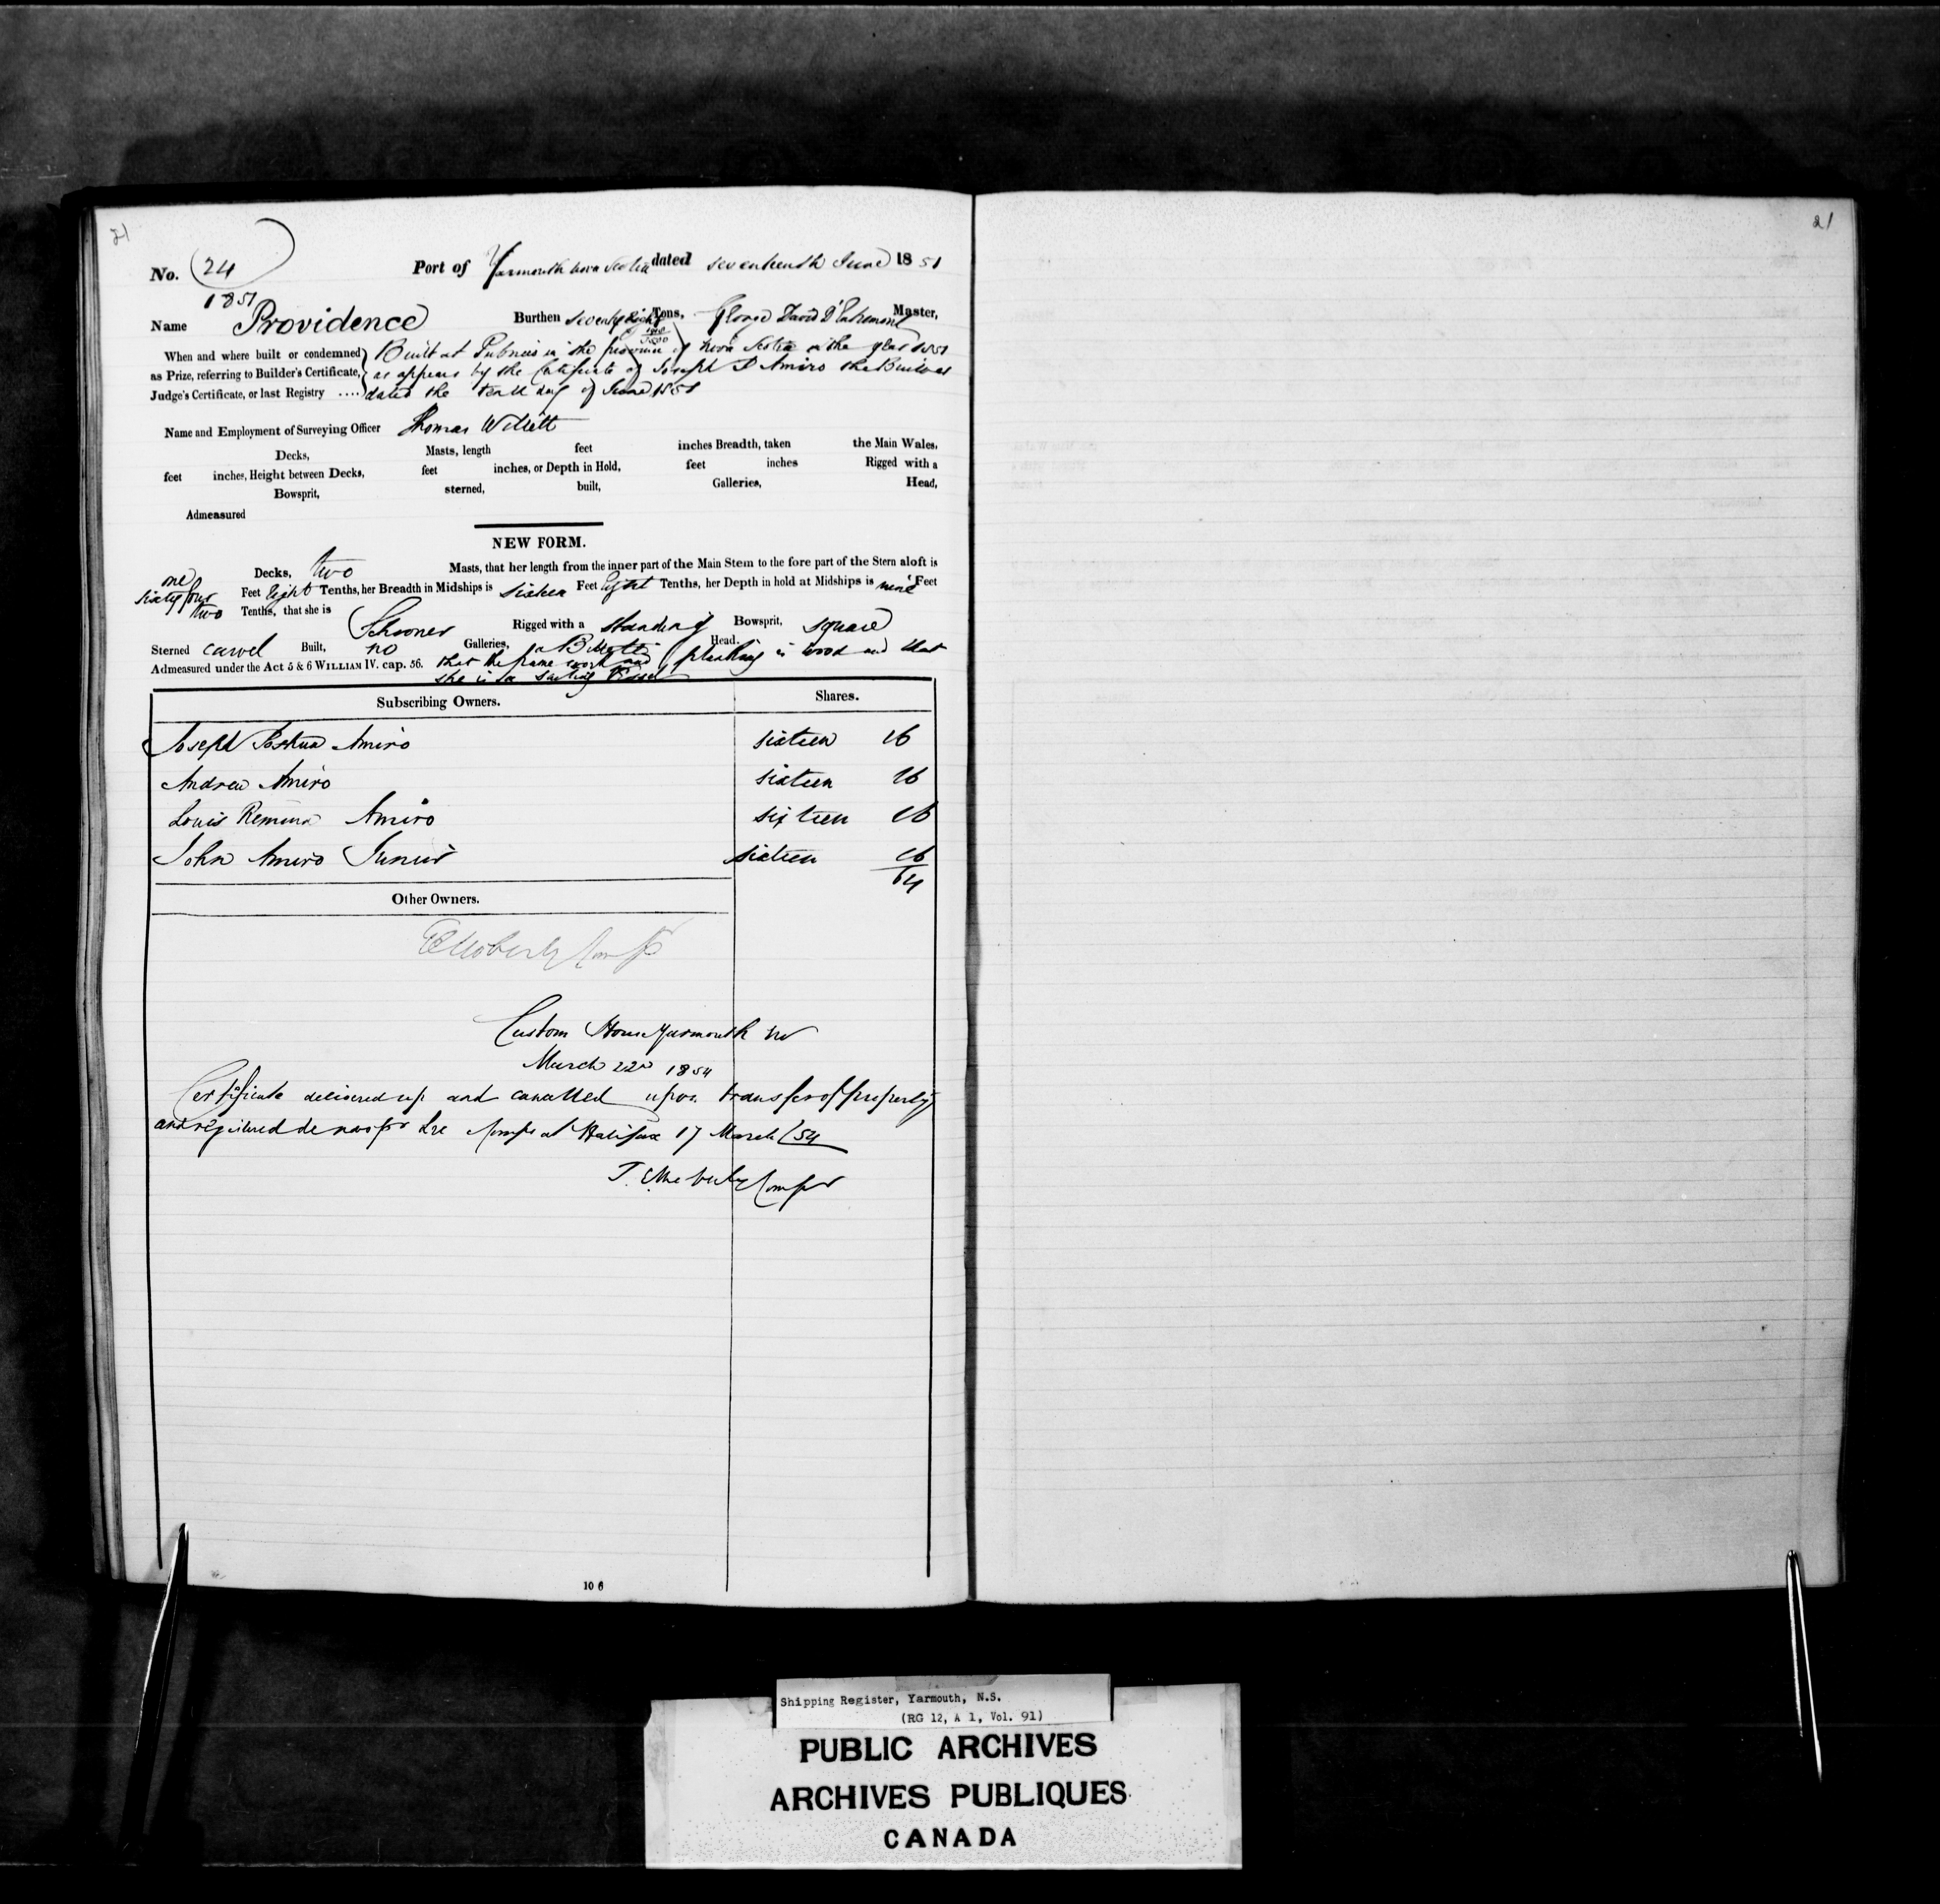 21
21
No. 24
1851
Port of Yarmouth Nova Scotia dated seventeenth June 1851
Name Providence Burthen seventy Eight Tons, George David D'Entremont Master,
When and where built or condemned Built at Pubnico in the province of Nova Scotia in the year 1851
as Prize, referring to Builder's Certificate, as appears by the Certificate of Joseph D Amiro the Builder
Judge's Certificate, or last Registry .... dated the tenth day of June 1851
Name and Employment of Surveying Officer Thomas Willett
Decks, Masts, length feet inches Breadth, taken the Main Wales,
feet inches, Height between Decks, feet inches, or Depth in Hold, feet inches Rigged with a
Bowsprit, sterned, built, Galleries, Head,
Admeasured
NEW FORM.
one Decks, two Masts, that her length from the inner part of the Main Stem to the fore part of the Stern aloft is
sixty four Feet Eight Tenths, her Breadth in Midships is sixteen Feet Eight Tenths, her Depth in hold at Midships is nine Feet
two Tenths, that she is Schooner Rigged with a standing Bowsprit, square
Sterned carvel Built, no Galleries, a Billett Head.
Admeasured under the Act 5 & 6 WILLIAM IV. cap. 56. that the frame work and planking is wood and that
she is a sailing Vessel
Subscribing Owners. Shares.
Joseph Joshua Amiro sixteen 16
Andrew Amiro sixteen 16
Louis Amiro sixteen 16
John Amiro Junior sixteen 16
64
Other Owners.
Custom House Yarmouth NS
March 22d 1854
Certificate delivered up and cancelled upon transfer of property
and registered de novo at Halifax 17 March /54
10 6
Shipping Register, Yarmouth, N.S.
(RG 12, A 1, Vol. 91)
PUBLIC ARCHIVES
ARCHIVES PUBLIQUES
CANADA